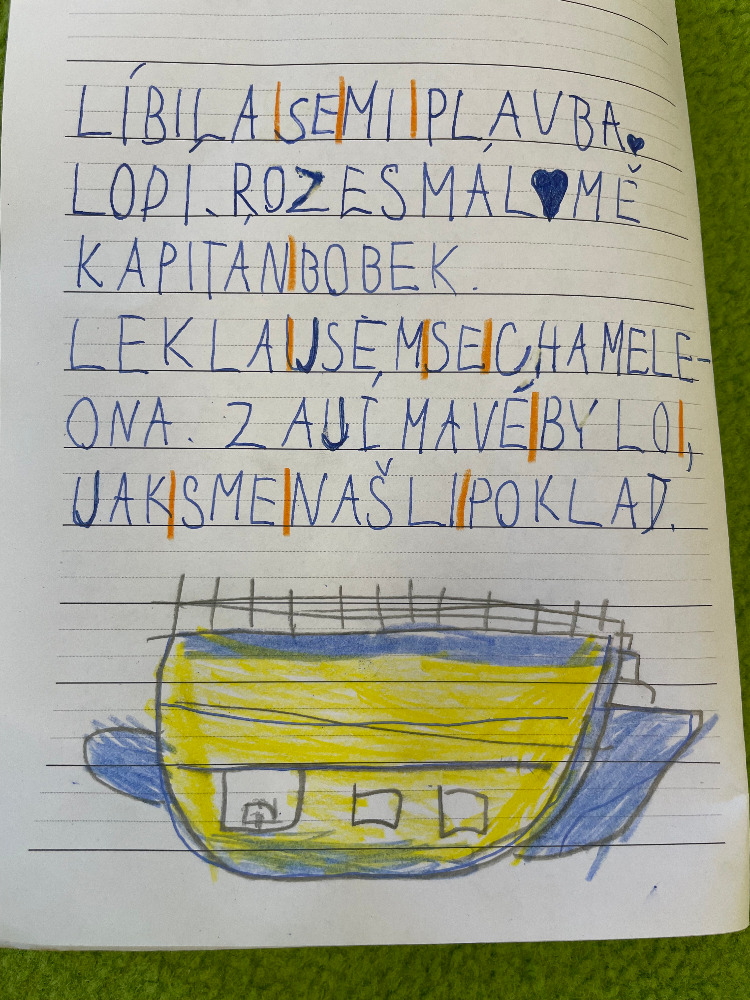 LÍBILA SE MI PLAVBA.
LODI. ROZESMÁL MĚ
KAPITAN BOBEK.
LEKLA USEM SE CHAMELE-
ONA. ZAUÍMAVÉ BYLO,
UAK SME NAŠLI POKLAD.